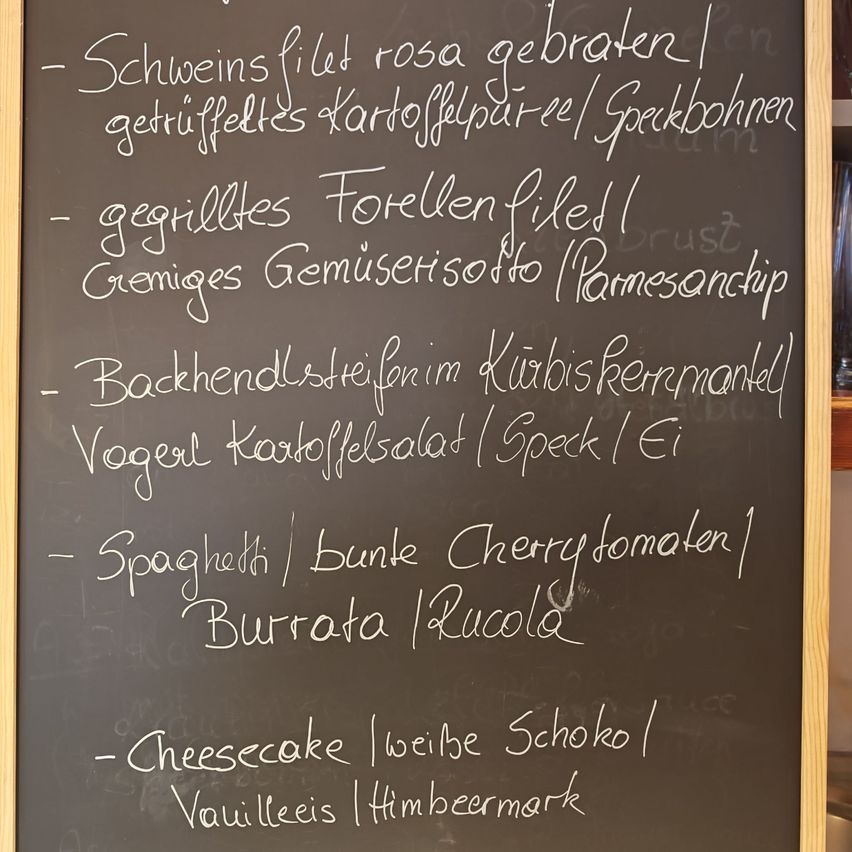 - Schweinsfilet rosa gebraten /
getrüffeltes Kartoffelpüree / Speckbohnen
- gegrilltes Forellenfilet /
cremiges Gemüserisotto / Parmesanchip
- Backhendlstreifen im Kürbiskernmantel /
Vogerl Kartoffelsalat / Speck / Ei
- Spaghetti / bunte Cherrytomaten /
Burrata / Rucola
- Cheesecake / weiße Schoko /
Vanilleeis / Himbeermark